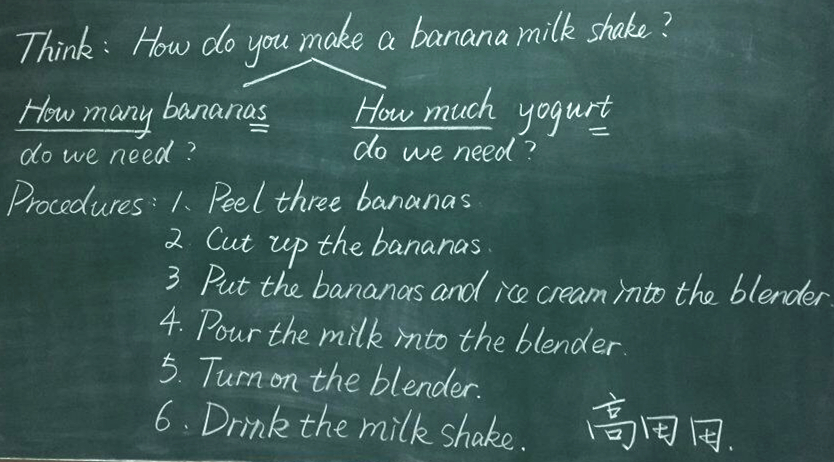 Think: How do you make a banana milk shake?
How many bananas
do we need?
How much yogurt
do we need?
Procedures: 1. Peel three bananas.
2. Cut up the bananas.
3 Put the bananas and ice cream into the blender.
4. Pour the milk into the blender.
5. Turn on the blender.
6. Drink the milk shake.
高